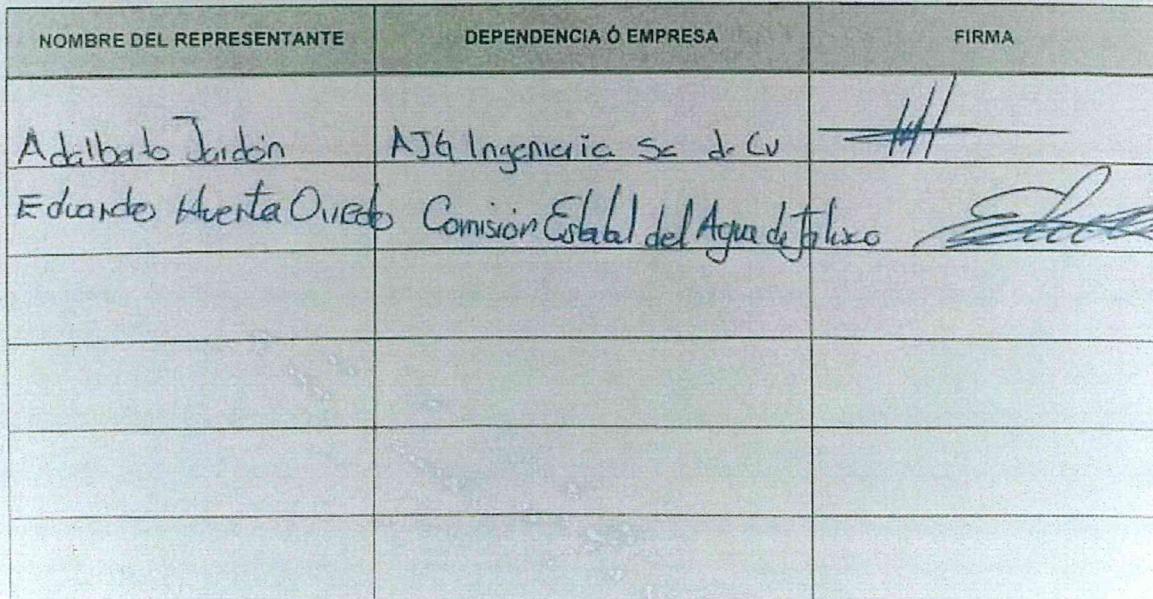 NOMBRE DEL REPRESENTANTE DEPENDENCIA Ó EMPRESA FIRMA
Adalberto Jardón AJG Ingenieria Sa de Cv
Eduardo Huerta Oviedo Comisión Estatal del Agua de Jalisco